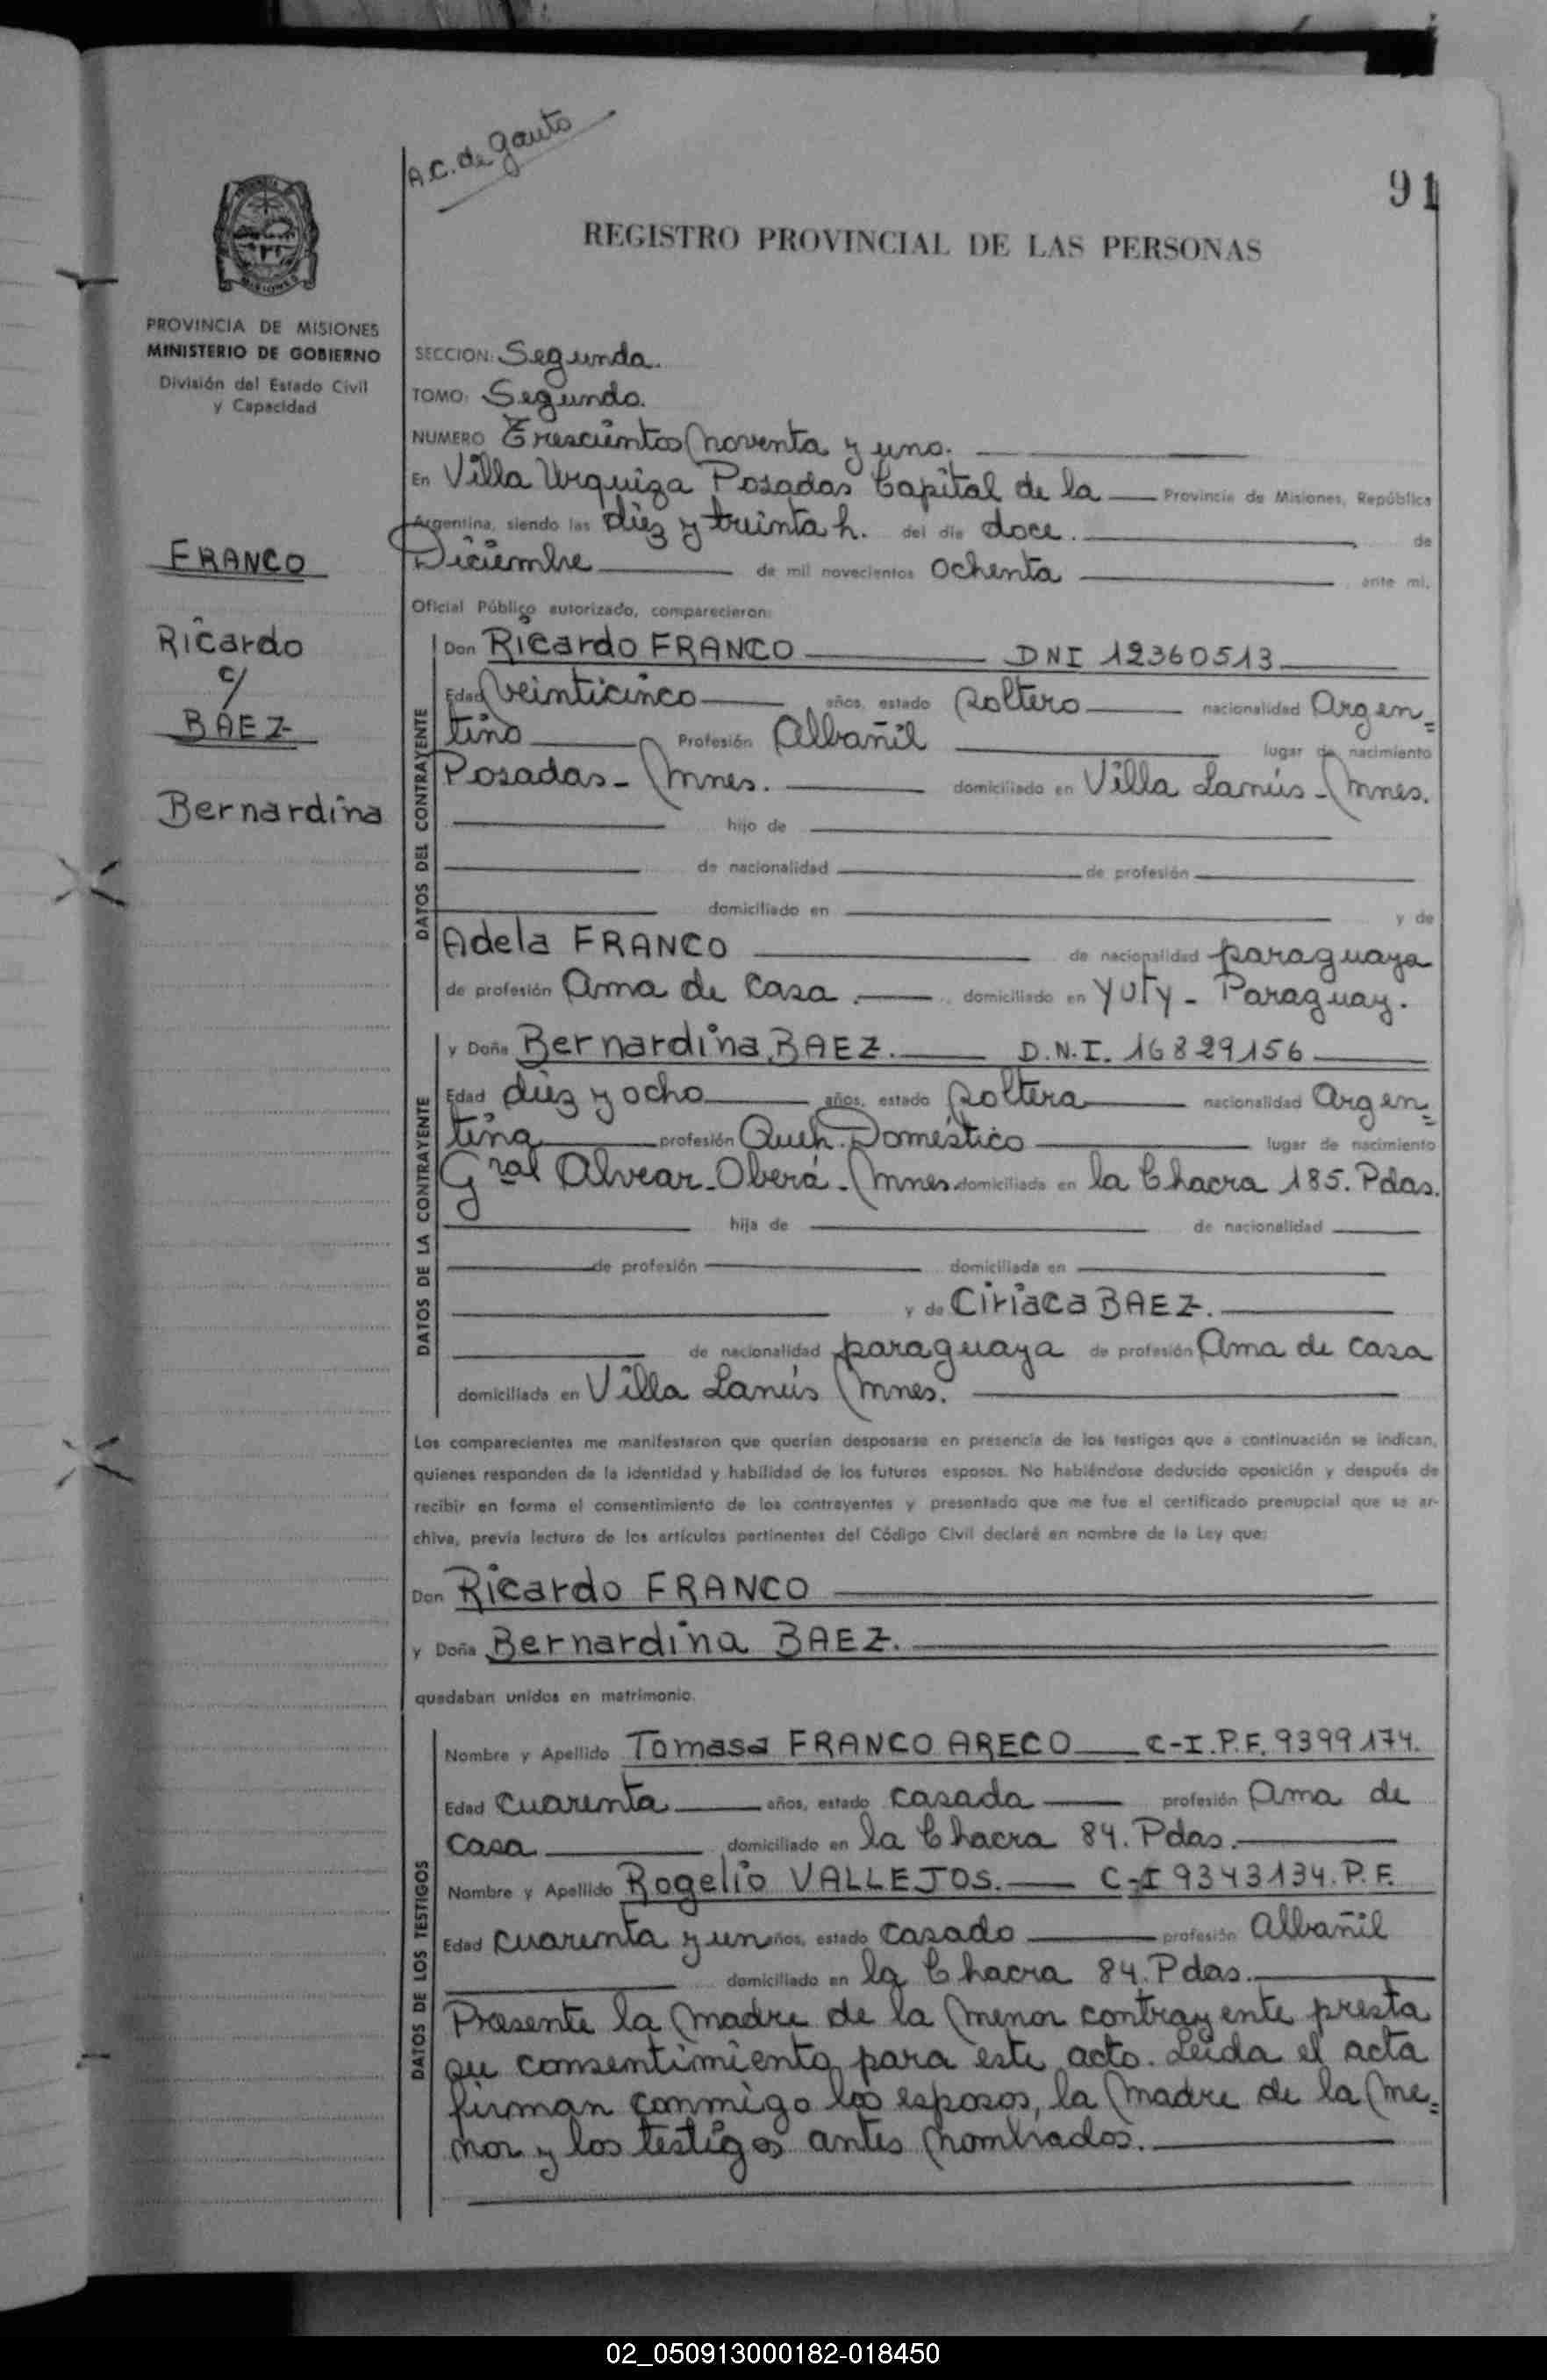 A.C. de Gauto
91
REGISTRO PROVINCIAL DE LAS PERSONAS
MISIONES
PROVINCIA DE MISIONES
MINISTERIO DE GOBIERNO
División del Estado Civil
y Capacidad
FRANCO
Ricardo
c/
BÁEZ
Bernardina
SECCION: Segunda.
TOMO: Segundo.
NUMERO Trescientos noventa y uno.
En Villa Urquiza Posadas Capital de la Provincia de Misiones, República
Argentina, siendo las diez y treinta h. del día doce. de
Diciembre de mil novecientos ochenta ante mí,
Oficial Público autorizado, comparecieron:
DATOS DEL CONTRAYENTE
Don Ricardo FRANCO DNI 12360513
Edad veinticinco años, estado soltero nacionalidad Argen=
tino Profesión Albañil lugar de nacimiento
Posadas - Mnes. domiciliado en Villa Lanús - Mnes.
hijo de
de nacionalidad de profesión
domiciliado en y de
Adela FRANCO de nacionalidad paraguaya
de profesión Ama de casa. domiciliado en YUTY - Paraguay.
DATOS DE LA CONTRAYENTE
y Doña Bernardina BAEZ. D.N.I. 16829156
Edad diez y ocho años, estado soltera nacionalidad Argen=
tina profesión Queh. Doméstico lugar de nacimiento
Gral Alvear - Oberá - Mnes. domiciliada en la Chacra 185. Pdas.
hija de de nacionalidad
de profesión domiciliada en
y de Ciriaca BAEZ.
de nacionalidad paraguaya de profesión Ama de casa
domiciliada en Villa Lanús Mnes.
Los comparecientes me manifestaron que querían desposarse en presencia de los testigos que a continuación se indican,
quienes responden de la identidad y habilidad de los futuros esposos. No habiéndose deducido oposición y después de
recibir en forma el consentimiento de los contrayentes y presentado que me fue el certificado prenupcial que se ar-
chiva, previa lectura de los artículos pertinentes del Código Civil declaré en nombre de la Ley que:
Don Ricardo FRANCO
y Doña Bernardina BAEZ.
quedaban unidos en matrimonio.
DATOS DE LOS TESTIGOS
Nombre y Apellido Tomasa FRANCO ARECO C-I.P.F. 9399174.
Edad cuarenta años, estado casada profesión Ama de
casa domiciliado en la Chacra 84. Pdas.
Nombre y Apellido Rogelio VALLEJOS. C-I 9343134. P.F.
Edad cuarenta y un años, estado casado profesión Albañil
domiciliado en la Chacra 84. Pdas.
Presente la madre de la menor contrayente presta
su consentimiento para este acto. Leida el acta
firman conmigo los esposos, la madre de la me=
nor y los testigos antes nombrados.
02_050913000182-018450